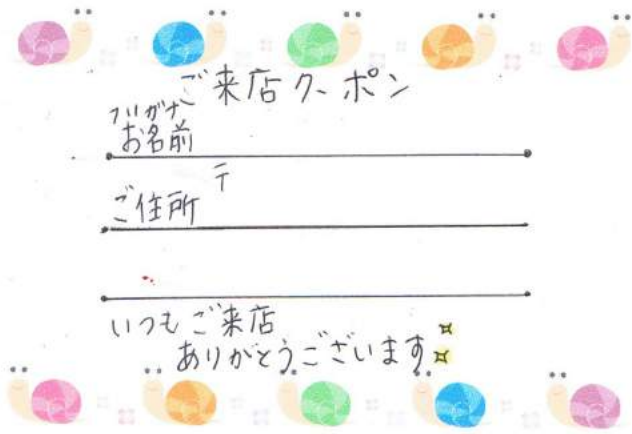 ご来店クーポン
フリガナ
お名前
〒
ご住所
いつもご来店
ありがとうございます